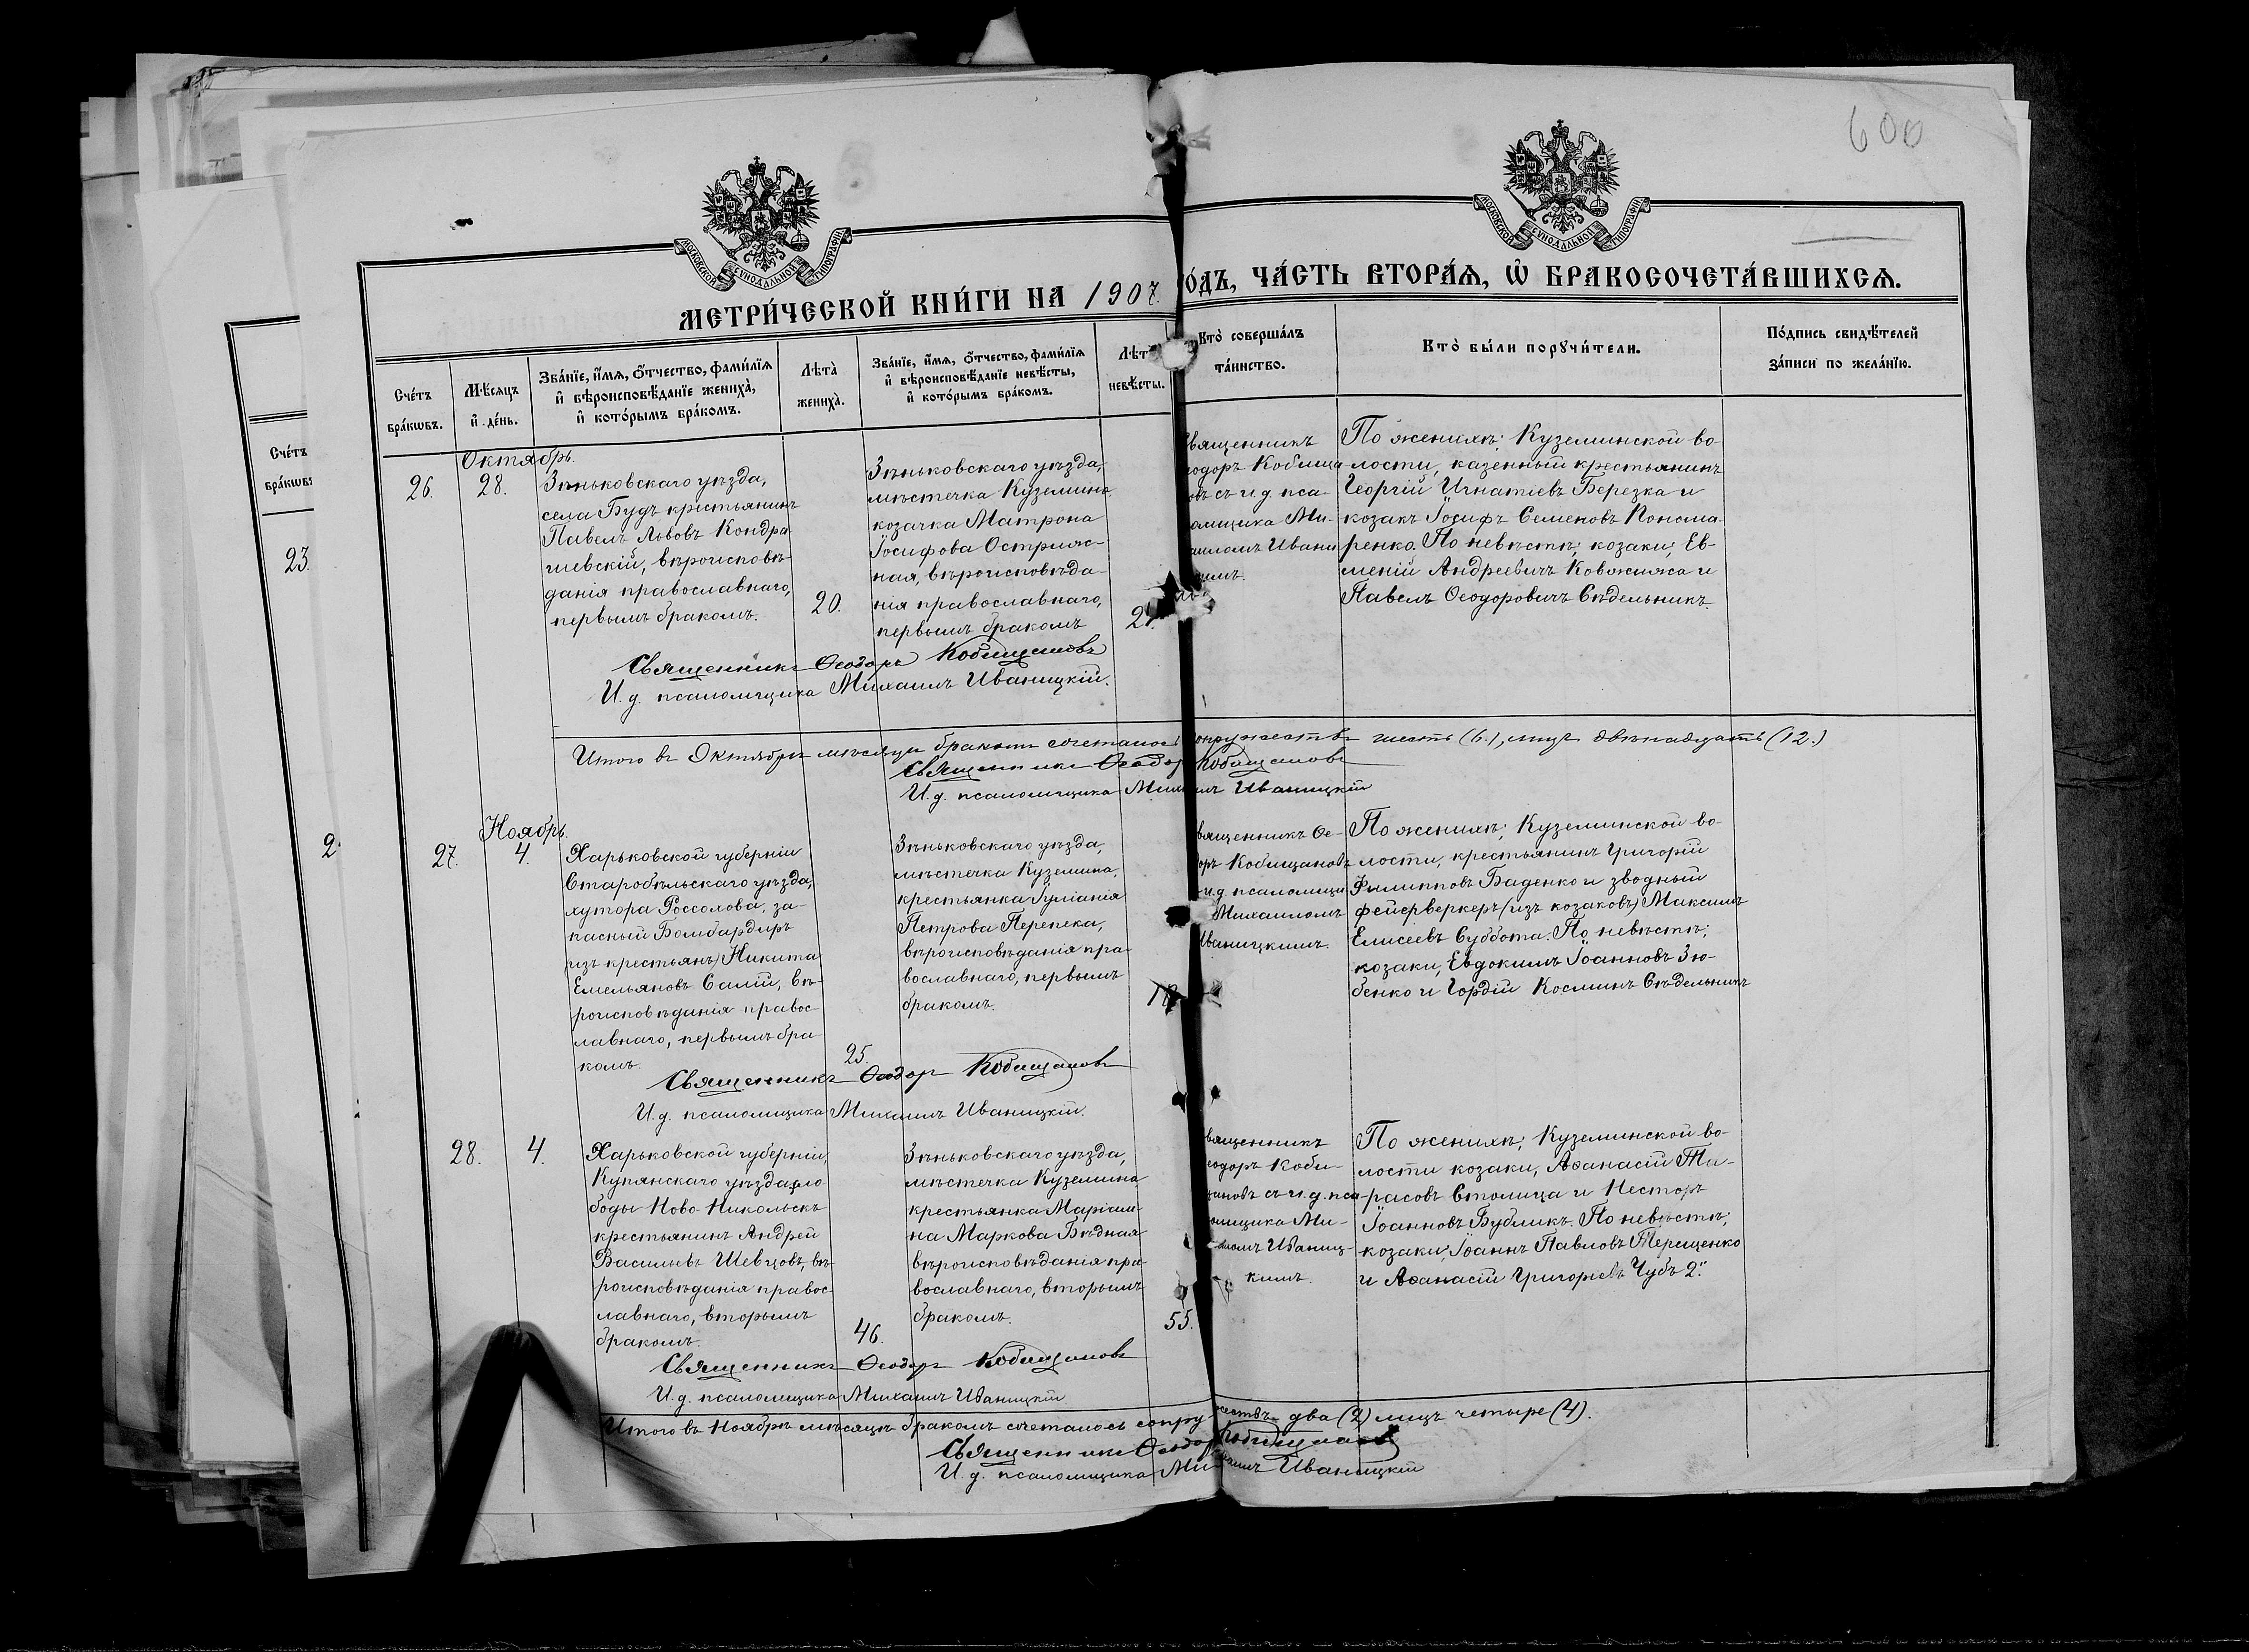 600
МОСКОВСКОЙ СѴНОДАЛЬНОЙ ТИПОГРАФІИ
МОСКОВСКОЙ СѴНОДАЛЬНОЙ ТИПОГРАФІИ
МЕТРИ́ЧЕСКОЙ КНИ́ГИ НА 1907.
О́ДЪ, ЧА́СТЬ ВТОРА́Ѧ, Ѡ҆ БРАКОСОЧЕТА́ВШИХСѦ.
Сче́тъ
бра́кѡвъ.
Мѣ́сяцъ
и҆ де́нь.
Зва́нїе, и҆́мя, ѻ҆́тчество, фами́лїя
и҆ вѣроисповѣ́данїе жениха̀,
и҆ кото́рымъ бра́комъ.
Лѣ́та
жениха̀.
Зва́нїе, и҆́мя, ѻ҆́тчество, фами́лїя
и҆ вѣроисповѣ́данїе невѣ́сты,
и҆ кото́рымъ бра́комъ.
Лѣт
невѣ́сты.
Кто̀ соверша́лъ
та́инство.
Кто̀ бы́ли порꙋчи́тели.
По́дпись свидѣ́телей
за́писи по жела́нїю.
Сче́тъ
бра́кѡвъ
23.
Октябрь.
26.
28.
Зѣньковскаго уѣзда,
села Будъ крестьянинъ
Павелъ Львовъ Кондра
шевскій, вѣроисповѣ-
данія православнаго,
первымъ бракомъ.
20.
Зѣньковскаго уѣзда,
мѣстечка Куземина
козачка Матрона
Іосифова Остряж-
ная, вѣроисповѣда-
нія православнаго,
первымъ бракомъ
вященникъ
одоръ Кобища
овъ съ и.д. пса-
омщика Ми-
аиломъ Ивани
имъ.
По женихѣ; Куземинской во-
лости, казенный крестьянинъ
Георгій Игнатіевъ Березка и
козакъ Іосифъ Семеновъ Понома-
ренко. По невѣстѣ; козаки; Ев-
меній Андреевичъ Ковжижа и
Павелъ Ѳеодоровичъ Сѣдельникъ.
Священникъ Ѳеодоръ Кобищановъ
И.д. псаломщика Михаилъ Иваницкій.
Итого въ Октябрѣ мѣсяцѣ бракомъ сочеталось
опружествъ шесть (6.), лицъ двѣнадцать (12.)
Священникъ Ѳеодор Кобищановъ
И.д. псаломщика Михаилъ Иваницкій
Ноябрь.
27.
4.
Харьковской губерніи
Старобѣльскаго уѣзда,
хутора Россохова, за-
пасный Бомбардиръ
(изъ крестьянъ) Никита
Емельяновъ Салій, вѣ-
роисповѣданія правос-
лавнаго, первымъ бра
комъ.
25.
Зѣньковскаго уѣзда,
мѣстечка Куземина,
крестьянка Іуліанія
Петрова Перепека,
вѣроисповѣданія пра-
вославнаго, первымъ
бракомъ.
вященникъ Ѳе-
оръ Кобищановъ
и.д. псаломщи
Михаиломъ
Иваницкимъ.
По женихѣ; Куземинской во-
лости, крестьянинъ Григорій
Филипповъ Баденко и зводный
фейерверкеръ (изъ козаковъ) Максимъ
Елисеевъ Суббота. По невѣстѣ;
козаки, Евдокимъ Іоанновъ Зю-
бенко и Гордій Косминъ Сѣдельникъ
Священникъ Ѳеодор Кобищановъ
И.д. псаломщика Михаилъ Иваницкій.
28.
4.
Харьковской губерніи,
Купянскаго уѣзда, сло
боды Ново-Никольскъ
крестьянинъ Андрей
Васильевъ Шевцовъ, вѣ-
роисповѣданія правос-
лавнаго, вторымъ
бракомъ.
46.
Зѣньковскаго уѣзда,
мѣстечка Куземина
крестьянка Маріам-
на Маркова Бѣдная
вѣроисповѣданія пра-
вославнаго, вторымъ
бракомъ.
55.
вященникъ
одоръ Коби-
ановъ съ и.д. пса-
мщика Ми-
иломъ Иваниц-
кимъ.
По женихѣ; Куземинской во-
лости козаки, Аѳанасій Та-
расовъ Столица и Несторъ
Іоанновъ Бубликъ. По невѣстѣ;
козаки; Іоаннъ Павловъ Терещенко
и Аѳанасій Григорьевъ Чубъ 2й.
Священникъ Ѳеодор Кобищановъ
И.д. псаломщика Михаилъ Иваницкій
Итого въ Ноябрѣ мѣсяцѣ бракомъ сочеталось супру-
жествъ два (2) лицъ четыре (4).
Священникъ Ѳеодор Кобищановъ
И.д. псаломщика Михаилъ Иваницкій